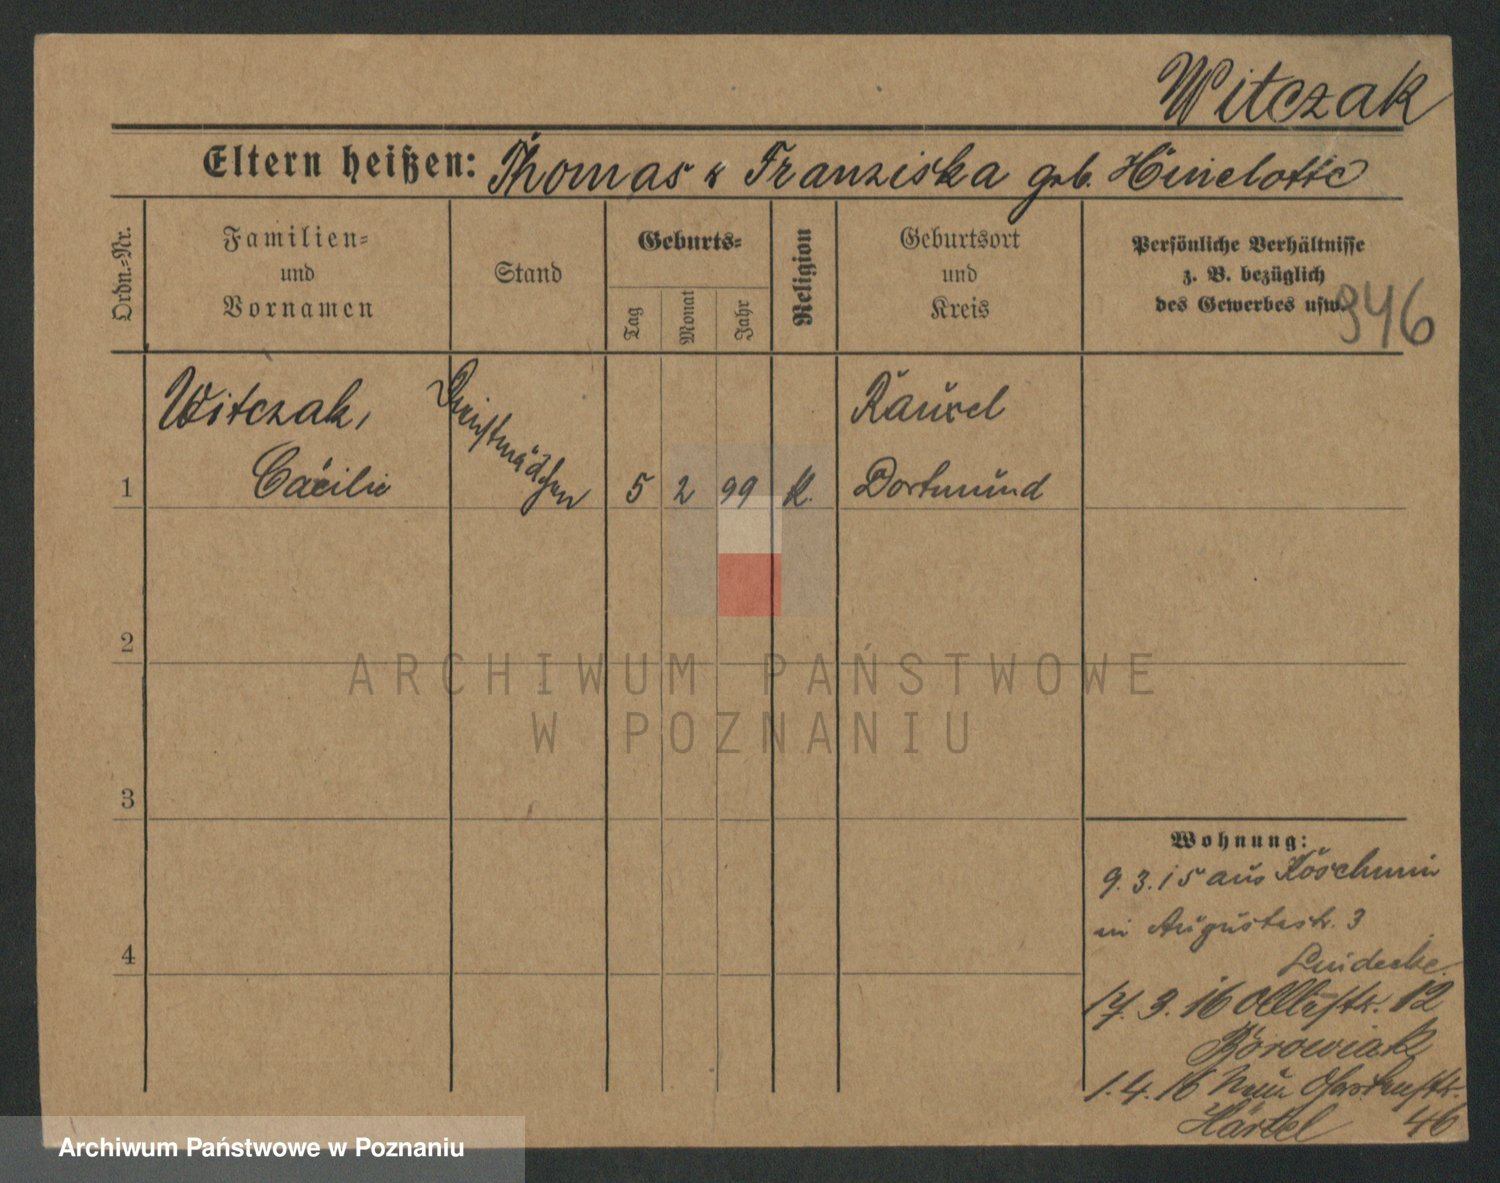 Witczak
Eltern heißen: Thomas u Franziska geb.
Ordn.=Nr.
Familien=
und
Vornamen
Stand
Geburts=
Tag
Monat
Jahr
Religion
Geburtsort
und
Kreis
Persönliche Verhältnisse
z. B. bezüglich
des Gewerbes usw.
946
Witczak,
Cäcilie
Dienstmädchen
Rauxel
1
5 2 99 k.
Dortmund
2
ARCHIWUM PAŃSTWOWE
W POZNANIU
3
Wohnung:
9.3.15 aus Koschmin
in Augustastr. 3
4
Lindecke.
17.3.16 12
Borowiak
1.4.16 Neue
Härtel 46
Archiwum Państwowe w Poznaniu